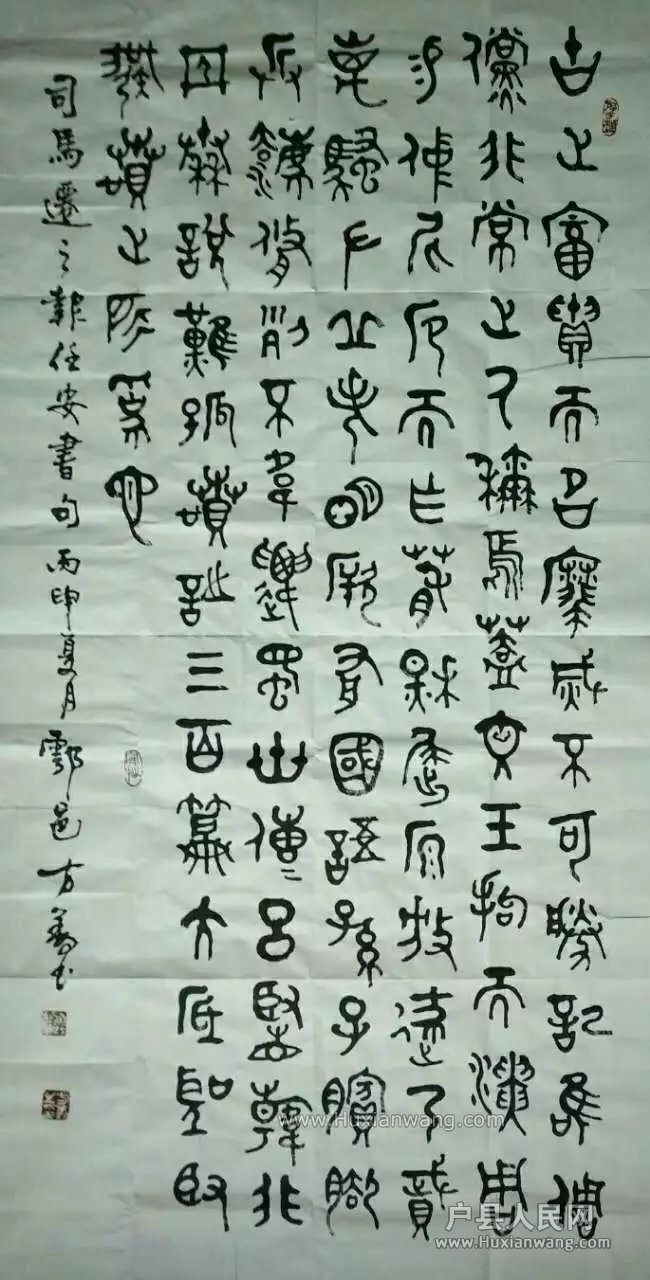 古之富貴而名摩滅不可勝記唯倜
儻非常之人稱焉蓋文王拘而演周
易仲尼厄而作春秋屈原放逐乃賦
離騷左丘失明厥有國語孫子臏腳
兵法脩列不韋遷蜀世傳呂覽韓非
囚秦說難孤憤詩三百篇大底聖賢
發憤之所為也
司馬遷之報任安書句丙申夏月鄠邑方書
www.Huxianwang.com
户县人民网
www.Huxianwang.com